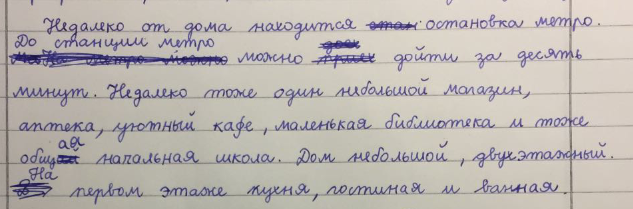 Недалеко от дома находится остановка метро.
До станции метро можно дойти за десять
минут. Недалеко тоже один небольшой магазин,
аптека, уютный кафе, маленькая библиотека и тоже
общая напальная школа. Дом небольшой, двухэтажный.
На первом этаже кухня, гостиная и ванная.